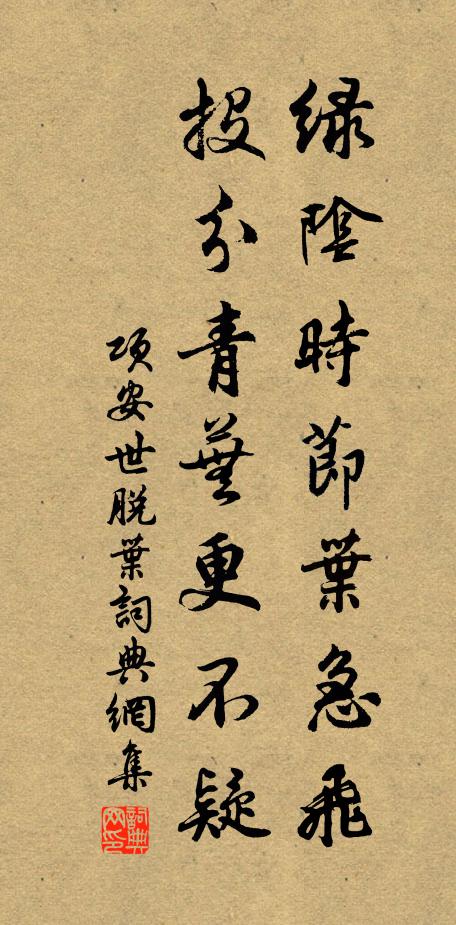 綠陰時節葉急飛
投分青蕪更不疑
項安世脫葉詞典網集
詞典網印